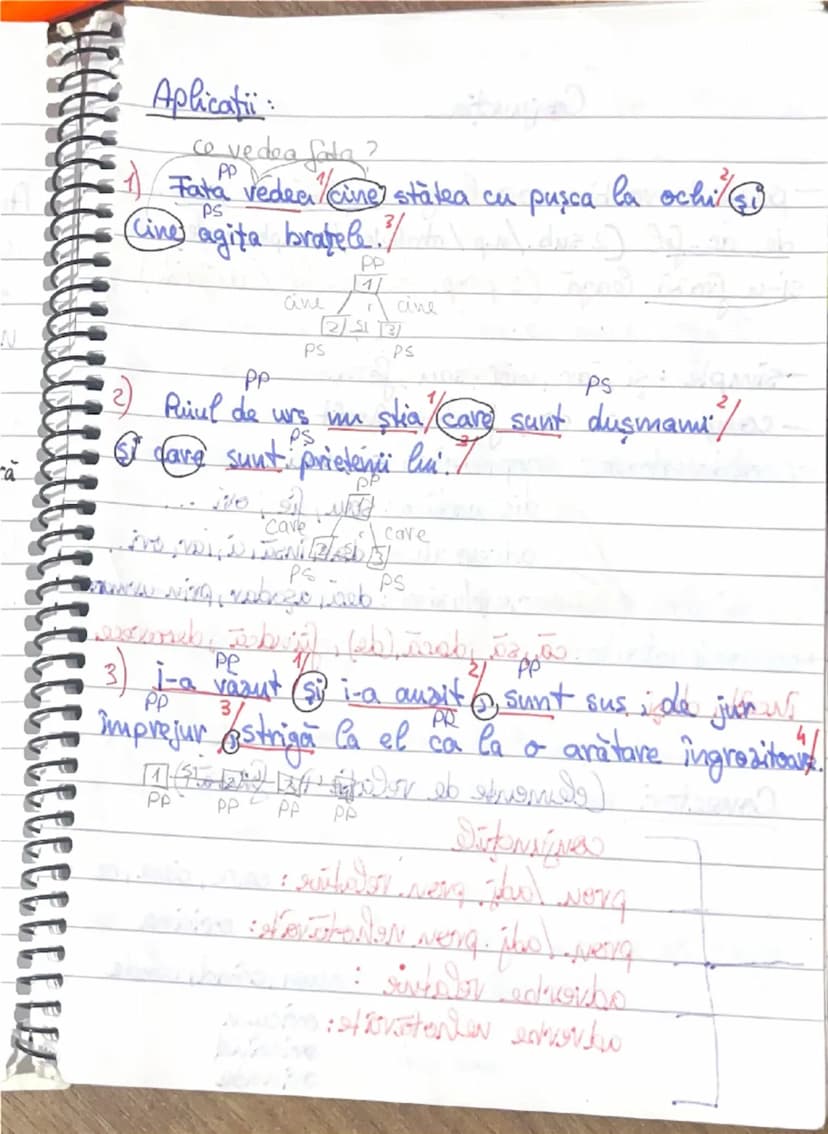 Aplicații:
ce vedea fata?
PP
1) Fata vedea 1/ cine stătea cu pușca la ochi 2/ și
PS
cine agita brațele. 3/
PP
1
cine cine
2 și 3
PS PS
PP PS
2) Puiul de urs nu știa 1/ care sunt dușmanii 2/
PS
și care sunt prietenii lui. 3/
PP
care care
2 și 3
PS PS
PP PP
3) I-a văzut 1/ și i-a auzit 2/, sunt sus, de jur
PP PP
împrejur 3/, strigă la el ca la o arătare îngrozitoare. 4/
1 și 2
PP PP PP PP